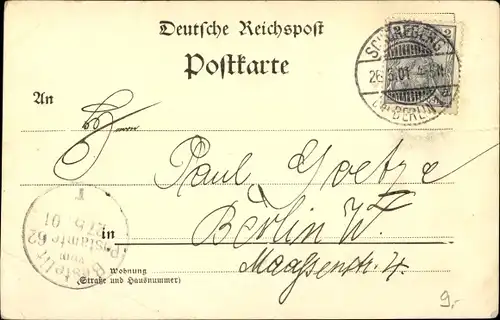 Deutsche Reichspost
Postkarte
SCHÖNEBERG
26.5.01
b. BERLIN
2
2
An
Herrn
Paul Goetze
in Berlin W.
Maassenstr. 4.
Wohnung
(Straße und Hausnummer)
Bestellt
vom
Postamte 62
01
9,-